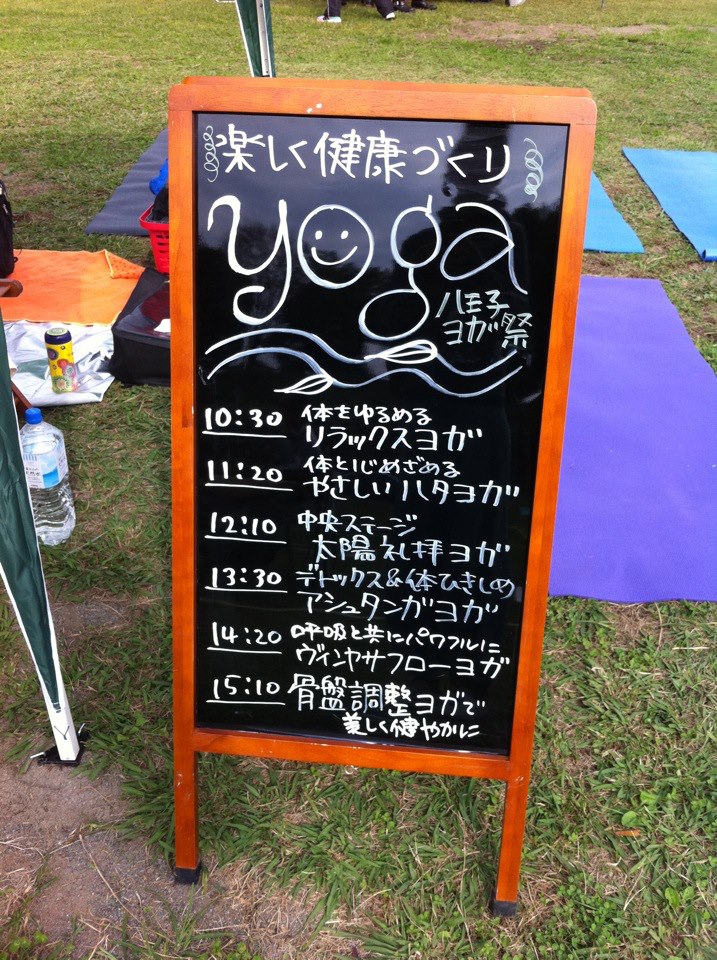 楽しく健康づくり
yoga
八王子
ヨガ祭
10:30 体をゆるめる
リラックスヨガ
11:20 体とじめざめる
やさしいハタヨガ
12:10 中央ステージ
太陽礼拝ヨガ
13:30 デトックス&体ひきしめ
アシュタンガヨガ
14:20 呼吸と共にパワフルに
ヴィンヤサフローヨガ
15:10 骨盤調整ヨガで
美しく健やかに